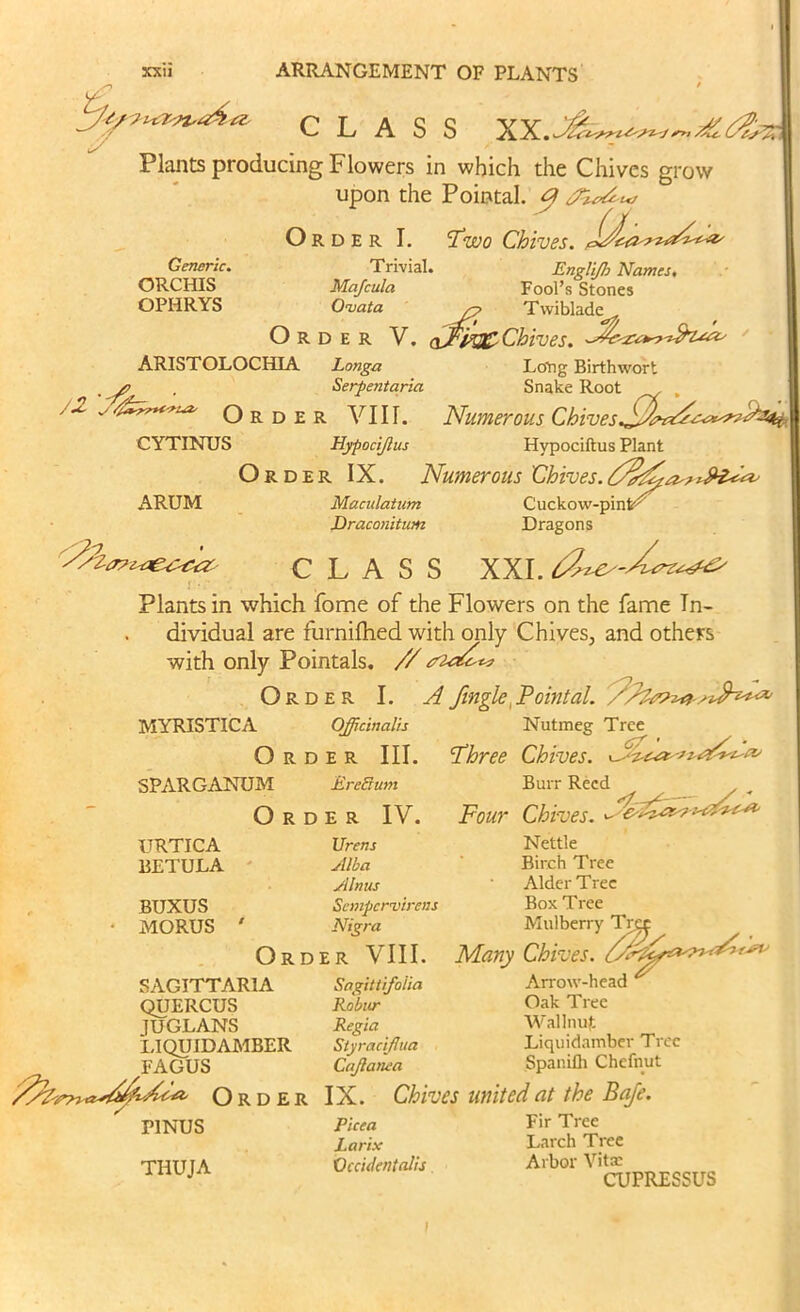 xxii ARRANGEMENT OF PLANTS
Gynandria CLASS XX.
Plants producing Flowers in which the Chives grow
upon the Pointal.
ORDER I. Two Chives. Diandria
Generic. Trivial. Engliſh Names.
ORCHIS Maſcula Fool's Stones
OPHRYS Ovata Twiblade
ORDER V. Chives. Hexandria
ARISTOLOCHIA Longa Long Birthwort
Serpentaria Snake Root
12 ORDER VIII. Numerous Chives.
CYTINUS Hypociſtus Hypociſtus Plant
ORDER IX. Numerous Chives. Polyandria
ARUM Maculatum Cuckow-pint
Draconitum Dragons
Monoecia CLASS XXI. One-house
Plants in which ſome of the Flowers on the ſame In-
dividual are furniſhed with only Chives, and others
with only Pointals. //
ORDER I. A ſingle Pointal. Monandria
MYRISTICA Officinalis Nutmeg Tree
ORDER III. Three Chives. Triandria
SPARGANUM Erectum Burr Reed
ORDER IV. Four Chives. Tetrandria
URTICA Urens Nettle
BETULA Alba Birch Tree
Alnus Alder Tree
BUXUS Sempervirens Box Tree
MORUS Nigra Mulberry Tree
ORDER VIII. Many Chives. Polyandria
SAGITTARIA Sagittifolia Arrow-head
QUERCUS Robur Oak Tree
JUGLANS Regia Wallnut
LIQUIDAMBER Styraciflua Liquidamber Tree
FAGUS Caſtanea Spaniſh Cheſnut
Monadelphia ORDER IX. Chives united at the Baſe.
PINUS Picea Fir Tree
Larix Larch Tree
THUJA Occidentalis Arbor Vitæ
CUPRESSUS